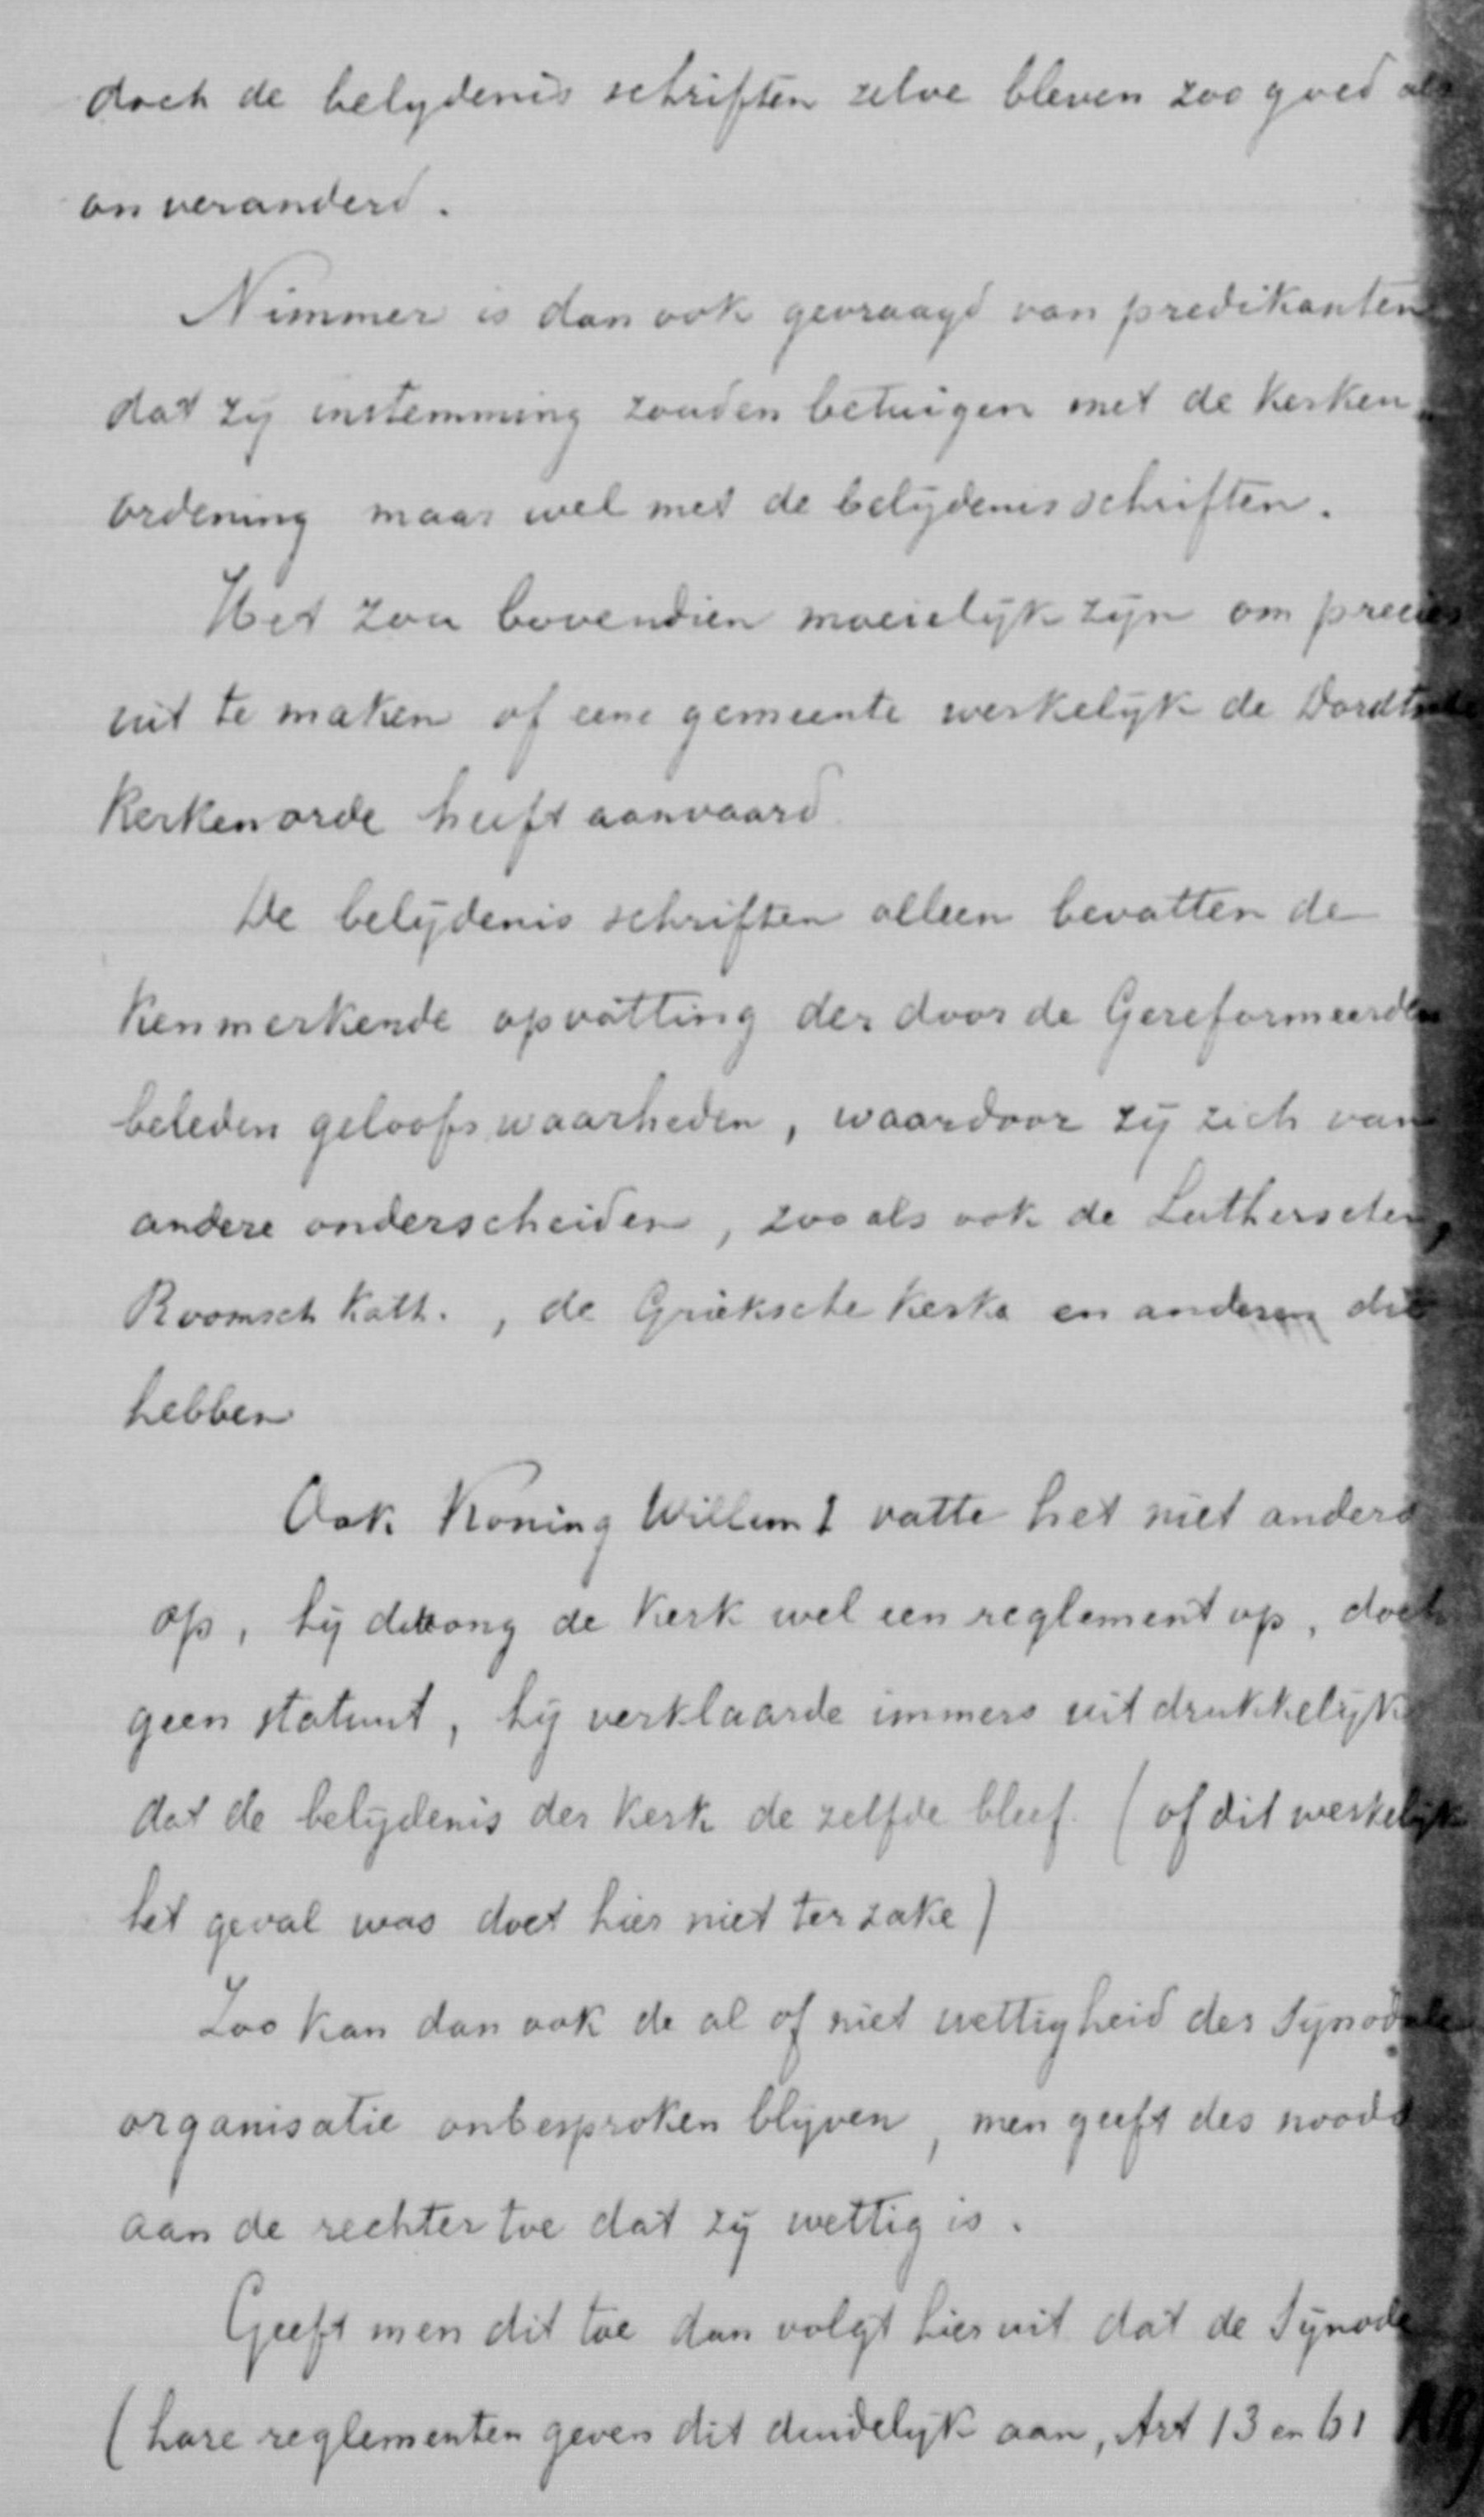 doch de belydenis schriften zelve bleven zoo goed als
onveranderd.
Nimmer is dan ook gevraagd van predikanten
dat zij instemming zouden betuigen met de Kerken
ordening maar wel met de belijdenisschriften.
Het zou bovendien moeielijk zijn om precies
uit te maken of eene gemeente werkelijk de Dordtsche
Kerkenorde heeft aanvaard
De belijdenis schriften alleen bevatten de
Kenmerkende opvatting der door de Gereformeerden
beleden geloofs waarheden, waardoor zij zich van
andere onderscheiden, zooals ook de Lutherschen,
Roomsch Kath., de Grieksche Kerke en anderen die
hebben
Ook Koning Willem I vatte het niet anders
op, hij drong de Kerk wel een reglement op, doch
geen statuut, hij verklaarde immers uitdrukkelijk
dat de belijdenis der Kerk de zelfde bleef. (of dit werkelijk
het geval was doet hier niet ter zake)
Zoo kan dan ook de al of niet wettigheid der Synodale
organisatie onbesproken blijven, men geeft des noods
aan de rechter toe dat zij wettig is.
Geeft men dit toe dan volgt hieruit dat de Synode
(hare reglementen geven dit duidelijk aan, Art 13 en 61 AR)